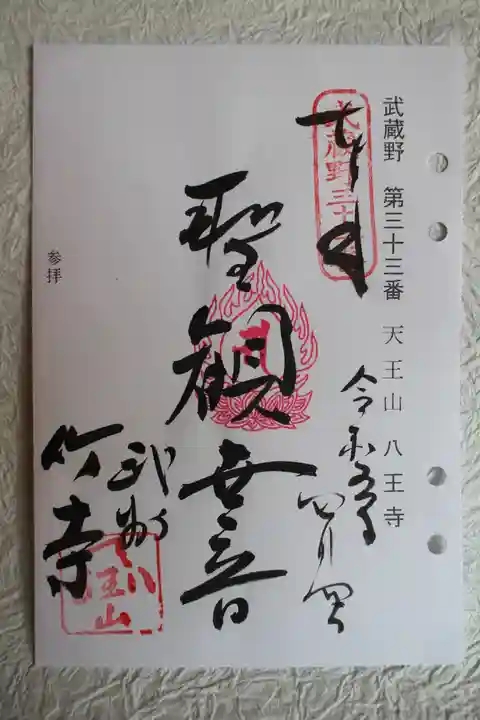 武蔵野 第三十三番 天王山 八王寺
奉拝
武蔵野三十
令和五年 四月
聖観世音
武州
竹寺
八王山
参拝